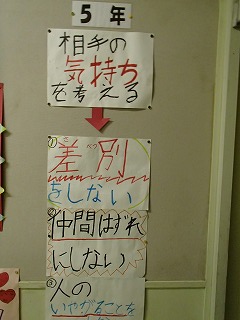 5年
相手の
気持ち
を考える
① 差別
さ べつ
をしない
② 仲間はずれ
にしない
③ 人の
いやがることを